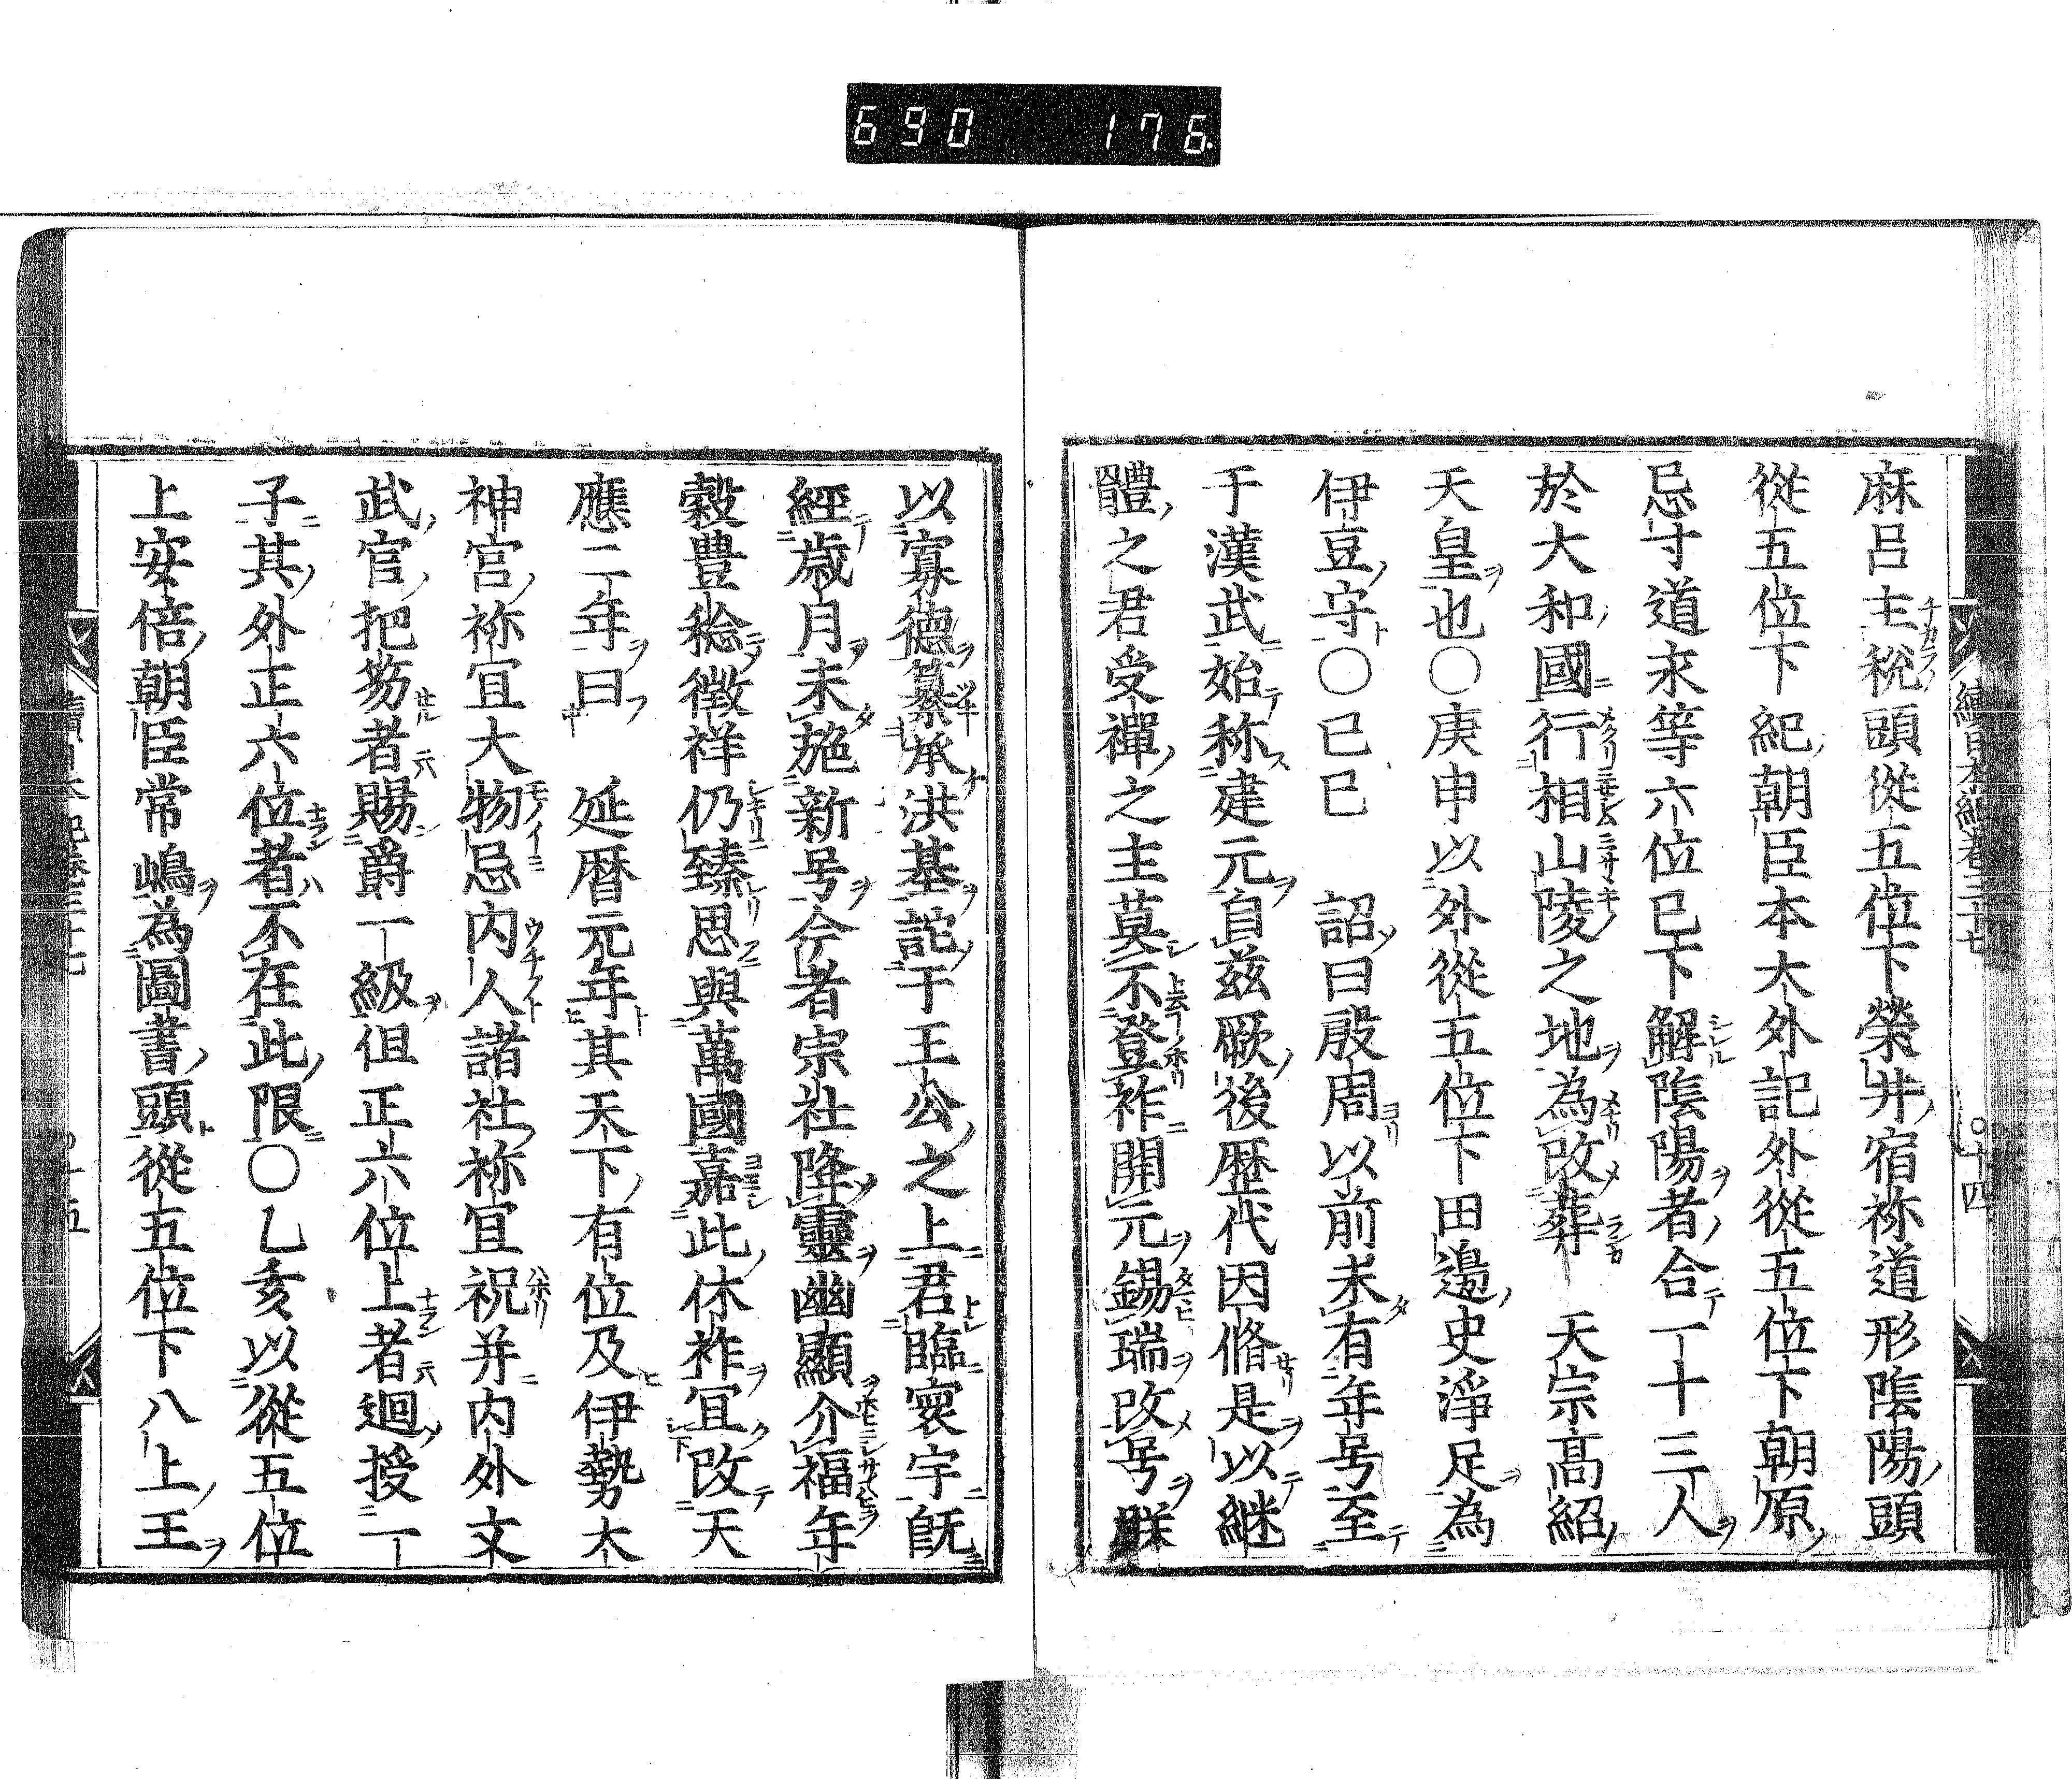 690 176
麻呂主税頭從五位下榮井宿祢道形陰陽頭
從五位下紀朝臣本大外記外從五位下朝原
忌寸道永等六位已下解陰陽者合一十三人
於大和國行相山陵之地為改葬 天宗高紹
天皇也〇庚申以外從五位下田邊史淨足為
伊豆守〇己巳 詔曰殷周以前未有年号至
于漢武始称建元自茲厥後歴代因脩是以継
體之君受禪之主莫不登祚開元錫瑞改号朕
以寡德纂承洪基託于王公之上君臨寰宇旣
經歳月未施新号今者宗社降靈幽顯介福年
穀豊稔徵祥仍臻思與萬國嘉此休祚冝改天
應二年曰 延暦元年其天下有位及伊勢大
神宮祢冝大物忌内人諸社祢冝祝并内外文
武官把笏者賜爵一級但正六位上者迴授一
子其外正六位者不在此限〇乙亥以從五位
上安倍朝臣常嶋為圖書頭從五位下八上王